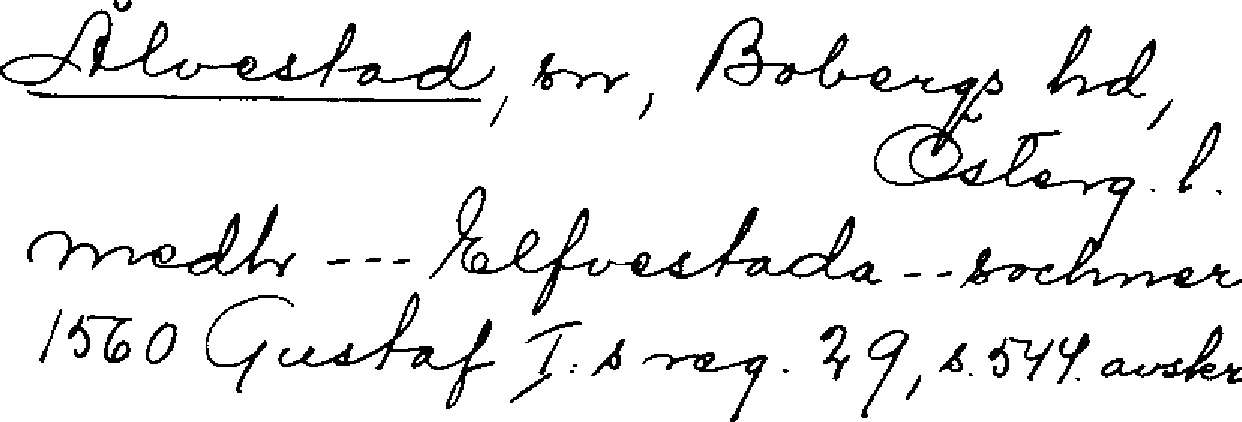 Ålvestad, sn, Bobergs hd,
Österg. l.
medhr --- Elfvestada -- sochner
1560 Gustaf I:s reg. 29, s. 544. avskr